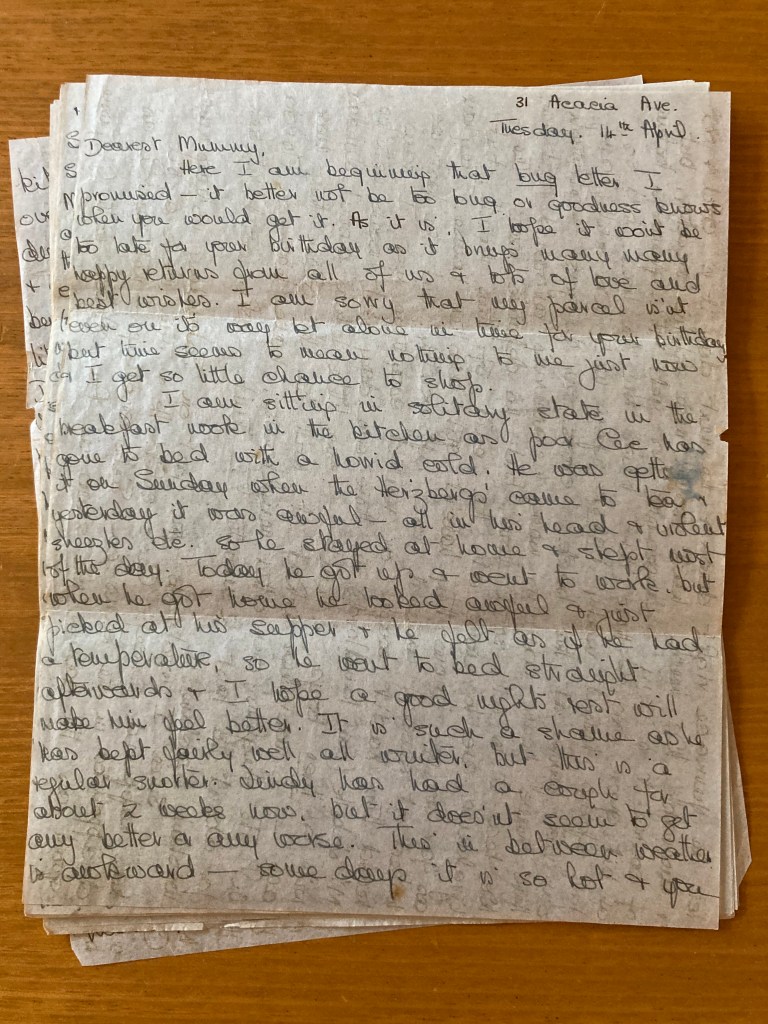 31 Acacia Ave.
Tuesday. 14th April.
Dearest Mummy,
Here I am beginning that bug letter I
promised – it better not be too bug or goodness knows
when you would get it. As it is, I hope it won't be
too late for your birthday as it brings many many
happy returns from all of us & lots of love and
best wishes. I am sorry that my parcel isn't
even on its way let alone in time for your birthday
but time seems to mean nothing to me just now
I get so little chance to shop.
I am sitting in solitary state in the
breakfast nook in the kitchen as poor Cec has
gone to bed with a horrid cold. He was getting
it on Sunday when the Herzbergs' came to tea &
yesterday it was awful – all in his head & violent
sneezles etc. so he stayed at home & slept most
of the day. Today he got up & went to work, but
when he got home he looked awful & just
picked at his supper & he felt as if he had
a temperature, so he went to bed straight
afterwards & I hope a good nights rest will
make him feel better. It is such a shame as he
has kept fairly well all winter, but this is a
regular snorter. has had a cough for
about 2 weeks now, but it doesn't seem to get
any better or any worse. This in between weather
is awkward – some days it is so hot & you